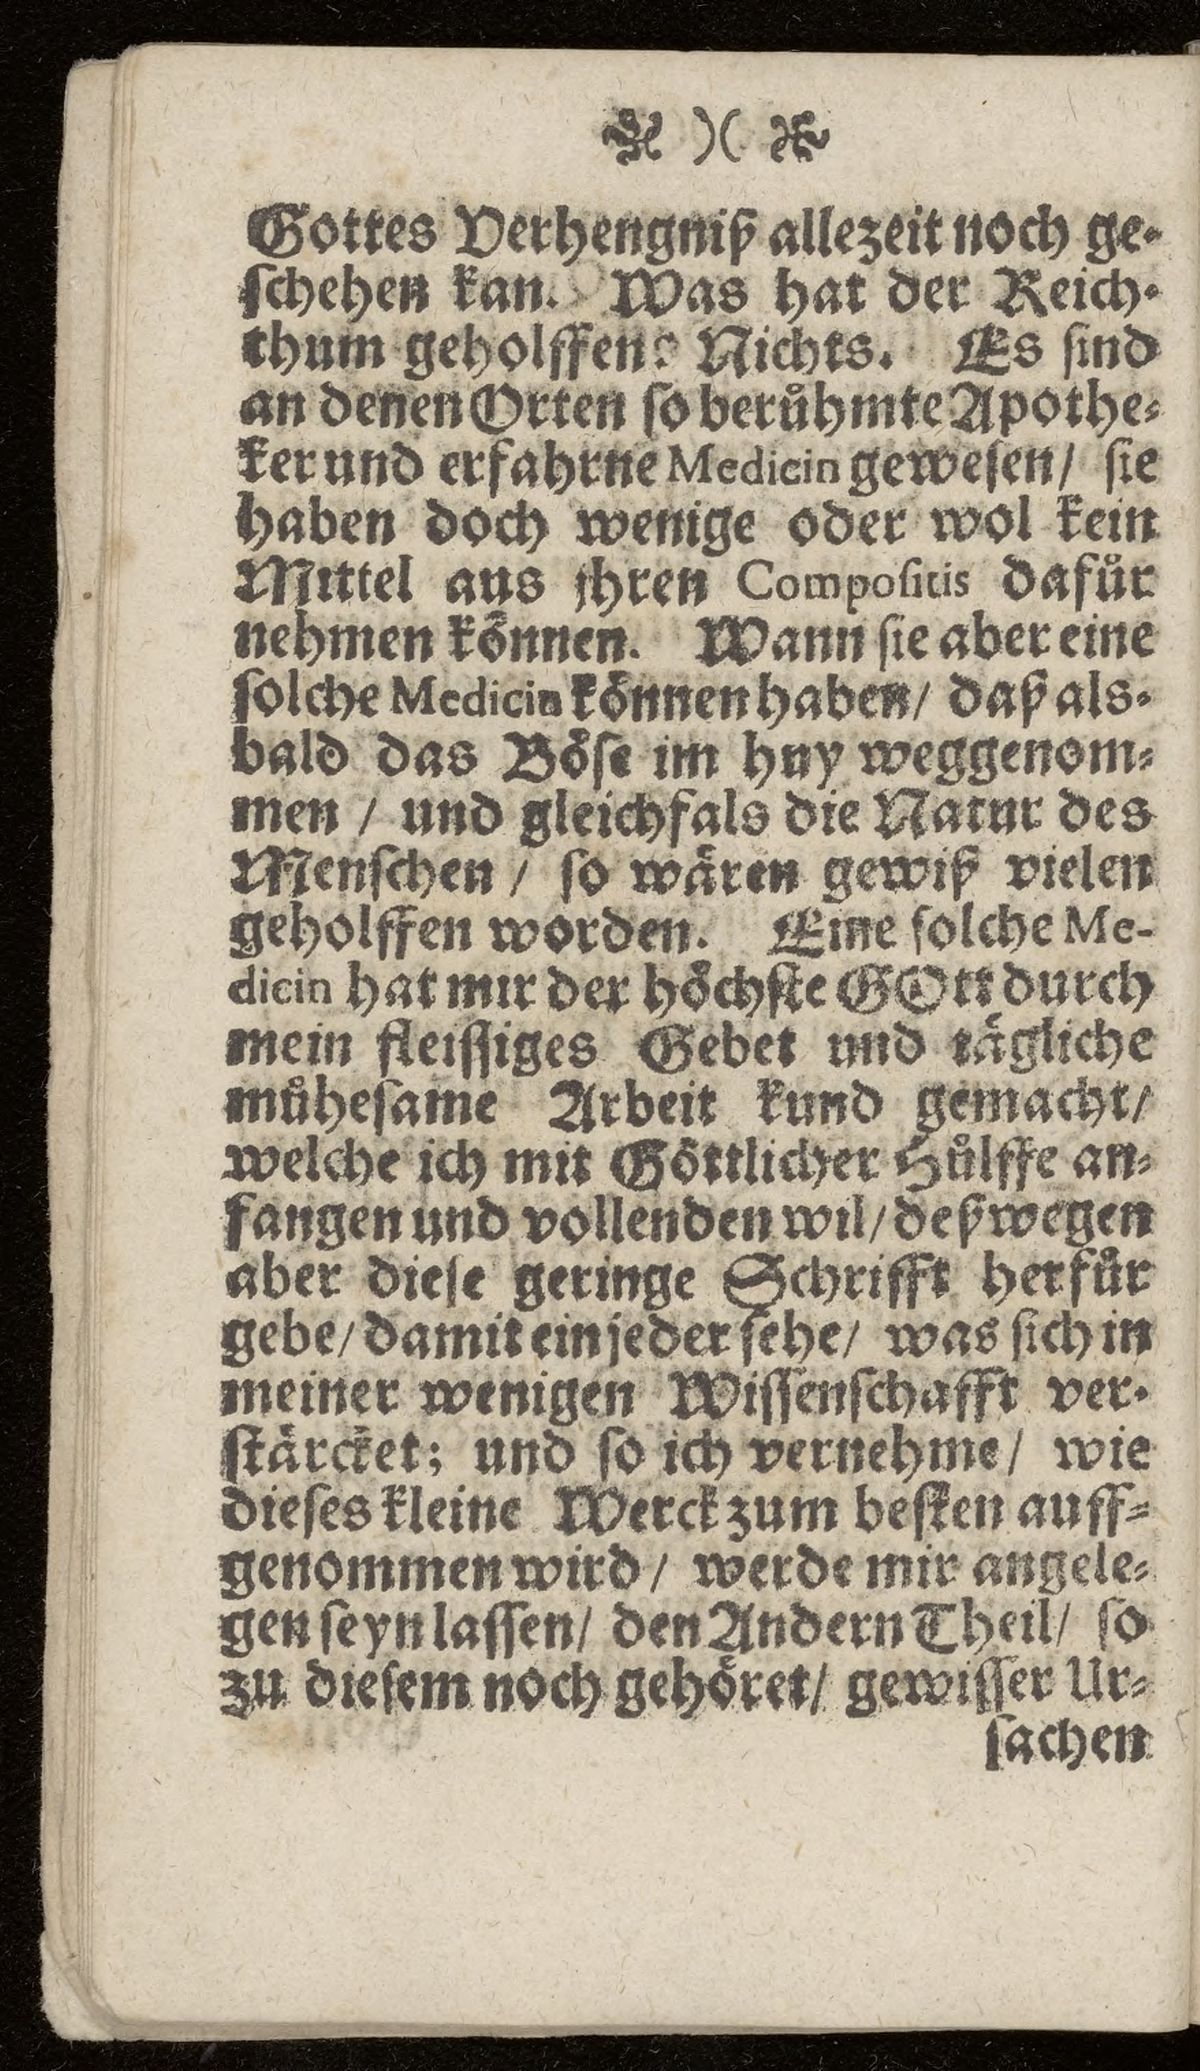 )(
Gottes Verhengniß allezeit noch ge-
schehen kan. Was hat der Reich-
thum geholffen? Nichts. Es sind
an denen Orten so berůhmte Apothe-
ker und erfahrne Medicin gewesen/ sie
haben doch wenige oder wol kein
Mittel aus jhren Compositis dafůr
nehmen kőnnen. Wann sie aber eine
solche Medicin kőnnen haben/ daß als-
bald das Bőse im huy weggenom-
men / und gleichfals die Natur des
Menschen / so wären gewiß vielen
geholffen worden. Eine solche Me-
dicin hat mir der hőchste GOtt durch
mein fleissiges Gebet und tägliche
můhesame Arbeit kund gemacht/
welche ich mit Gőttlicher Hůlffe an-
fangen und vollenden wil/ deßwegen
aber diese geringe Schrifft herfůr
gebe/ damit ein jeder sehe/ was sich in
meiner wenigen Wissenschafft ver-
stärcket; und so ich vernehme/ wie
dieses kleine Werck zum besten auff-
genommen wird / werde mir angele-
gen seyn lassen/ den Andern Theil/ so
zu diesem noch gehőret/ gewisser Ur-
sachen